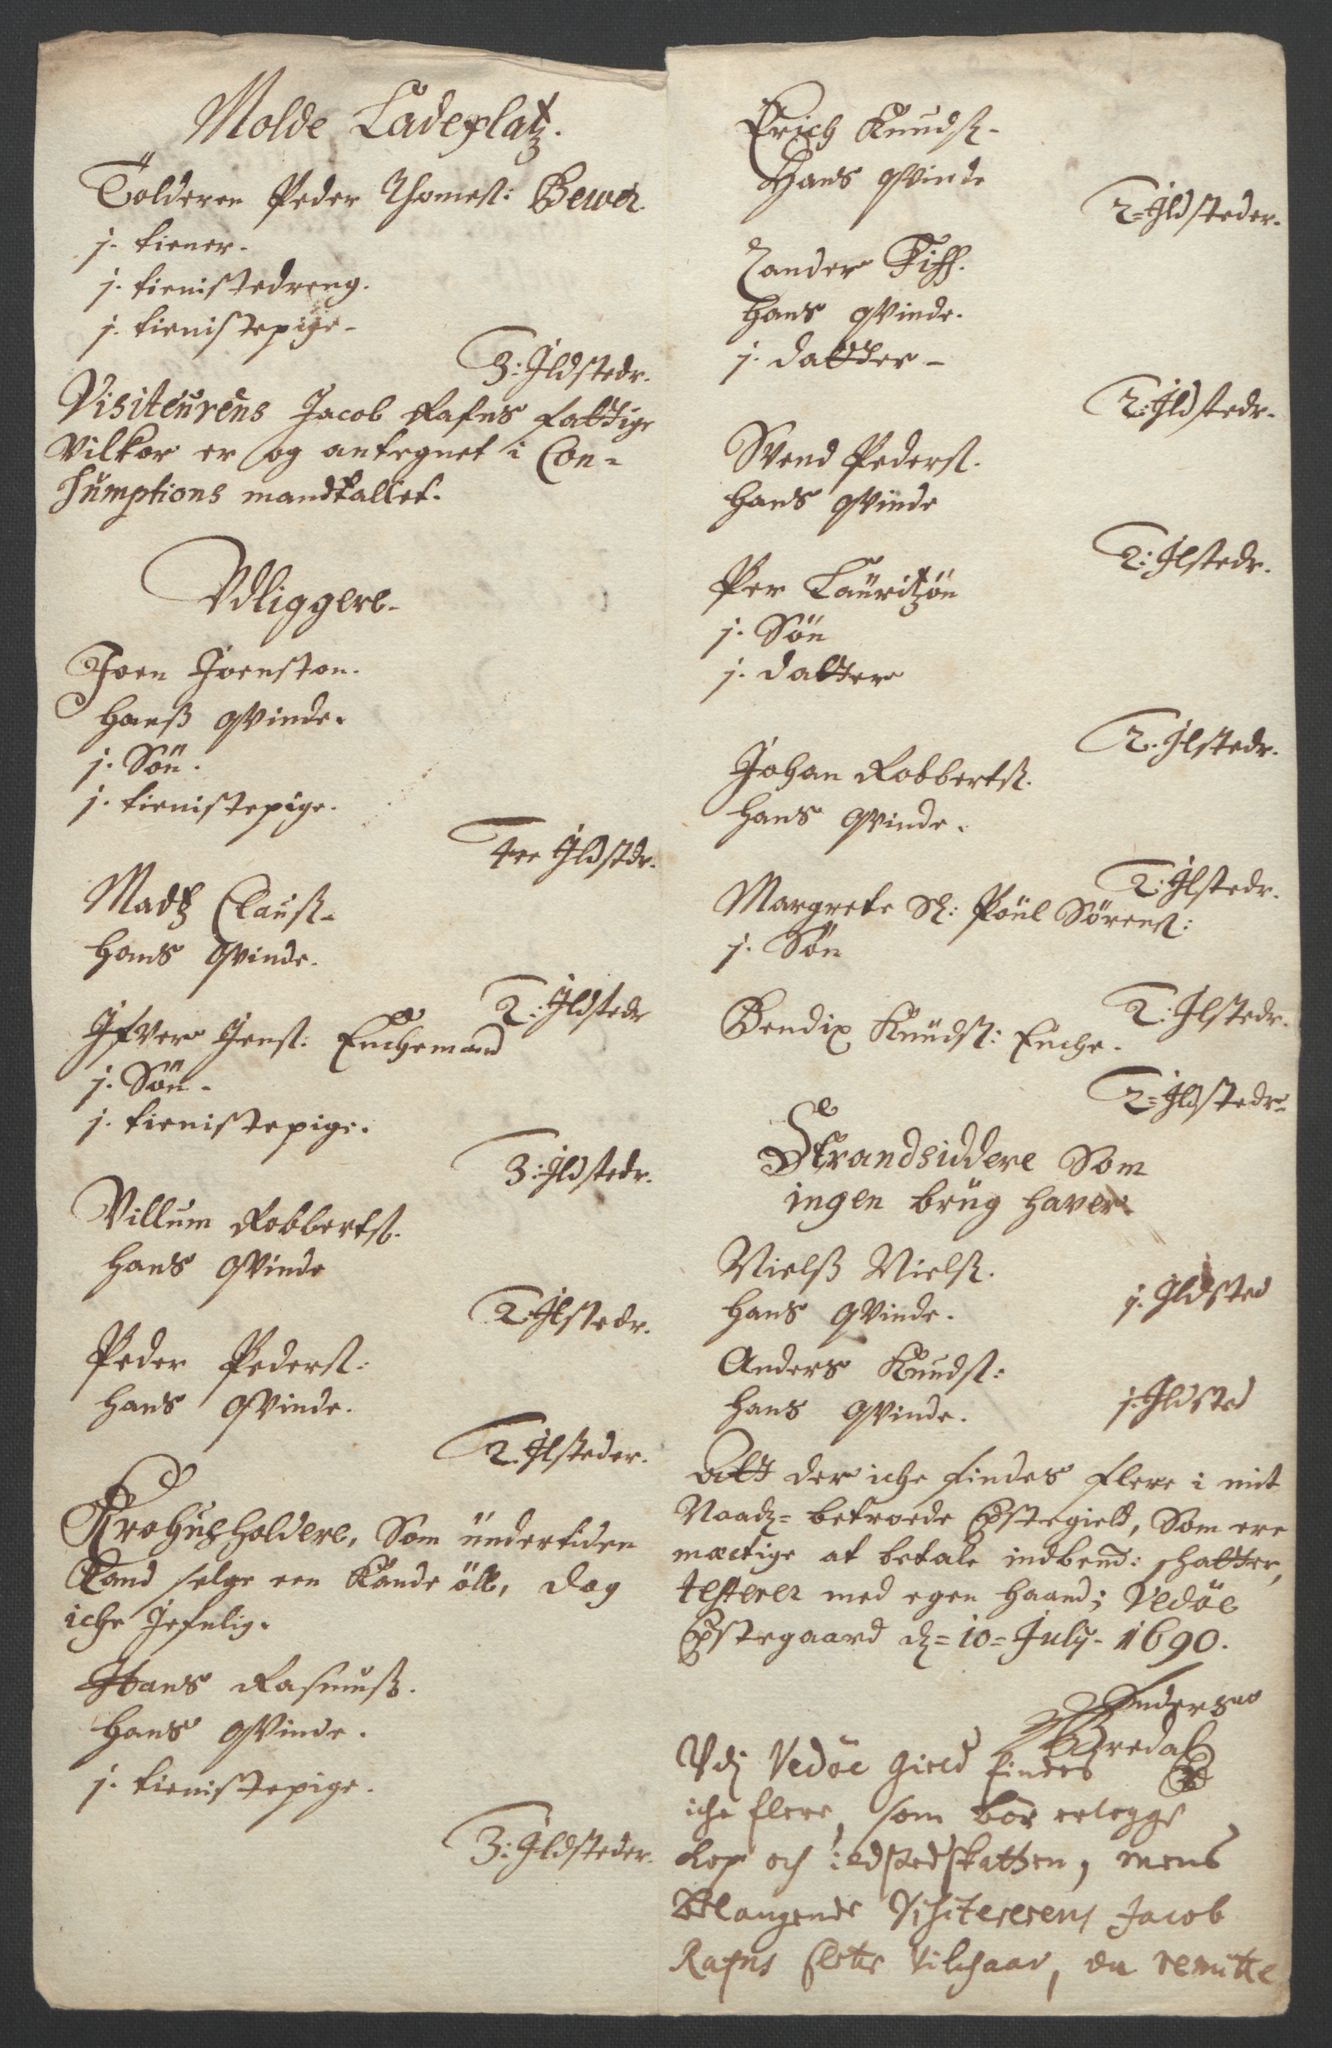 Molde Ladeplatz.
Tolderen Peder Thomesl: Bewer
j. tiener.
j. tienistedreng.
j. tienistepige.
3: Jldstedr.
Visiteurens Jacob Rafns fattige
Vilkor er og antegnet i Con-
sumptions mandtallet.
Vdliggere.
Joen Joenston.
Hanß qvinde.
j. Søn.
j. tienistepige.
Jldstdr.
Madtz Clausß.
Hans qvinde.
2: Jldstedr
Jfver Jensl: Enchemand
j. Søn.
j. tienistepige.
3: Jldstedr.
Villum Robbertsl.
Hans qvinde
2: Jlstedr.
Peder Pedersl:
Hans qvinde.
2. Jlsteder.
Krohuusholdere, Som undertiden
kand selge een Kande öll, dog
iche Jefnlig.
Hans Rasmusß.
Hans qvinde.
j. tienistepige.
3: Jldsteder.
Erich Knudsl.
Hans qvinde
2= Jldsteder.
Zander Fiff.
Hans qvinde.
j. datter
2: Jldstedr.
Svend Pedersl.
Hans qvinde
2: Jlstedr.
Per Lauritzøn
j. Søn
j. datter
2. Jlstedr.
Johan Robbertsl.
Hans qvinde.
2: Jlstedr.
Margrete Sl: Poül Sørensl:
j. Søn
2: Jlstedr.
Bendix Knüdsl: Enche.
2= Jldstedr
Strandsiddere Som
ingen brüg haver
Nielß Nielsl.
j. Jldsted
Hans qvinde.
Anders Knudsl:
j. Jldsted
Hans qvinde.
Att der iche findes flere i mit
Naadz= betroede Prestegield, Som ere
mæctige at betale indbemt: schatter,
testerer med egen haand; Vedöe
Prestegaard dz= 10= July. 1690.
Anders
Bredal
Vdj Vedöe Gield findes
iche flere, som bör erlegge
Kop och ildstedskatten, mens
belangende Visiterens Jacob
Rafns slette Vilchaar, da remitte